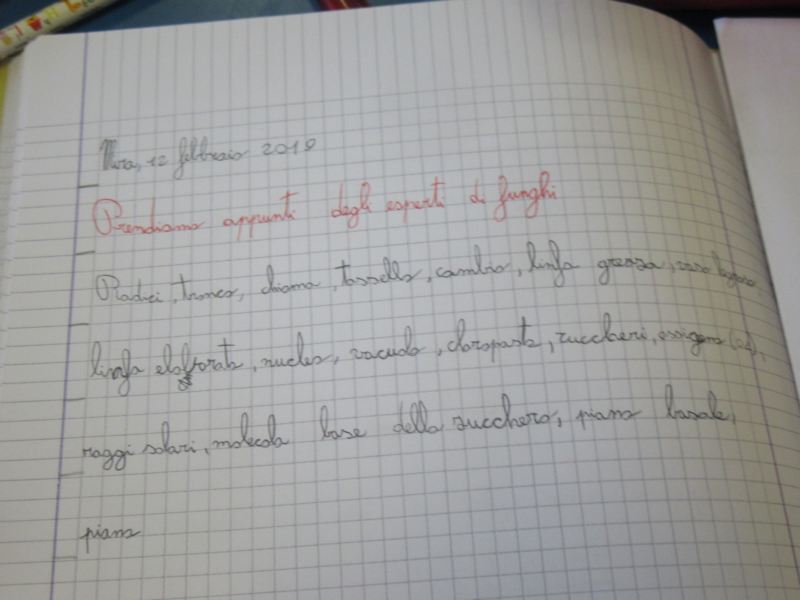 Mira, 12 febbraio 2019
Prendiamo appunti dagli esperti di funghi
Radici, tronco, chioma, tassello, cambio, linfa grezza, vaso
linfa elaborata, nucleo, vacuolo, cloroplasto, zuccheri, ossigeno
raggi solari, molecola base dello zucchero, piano basale,
piano